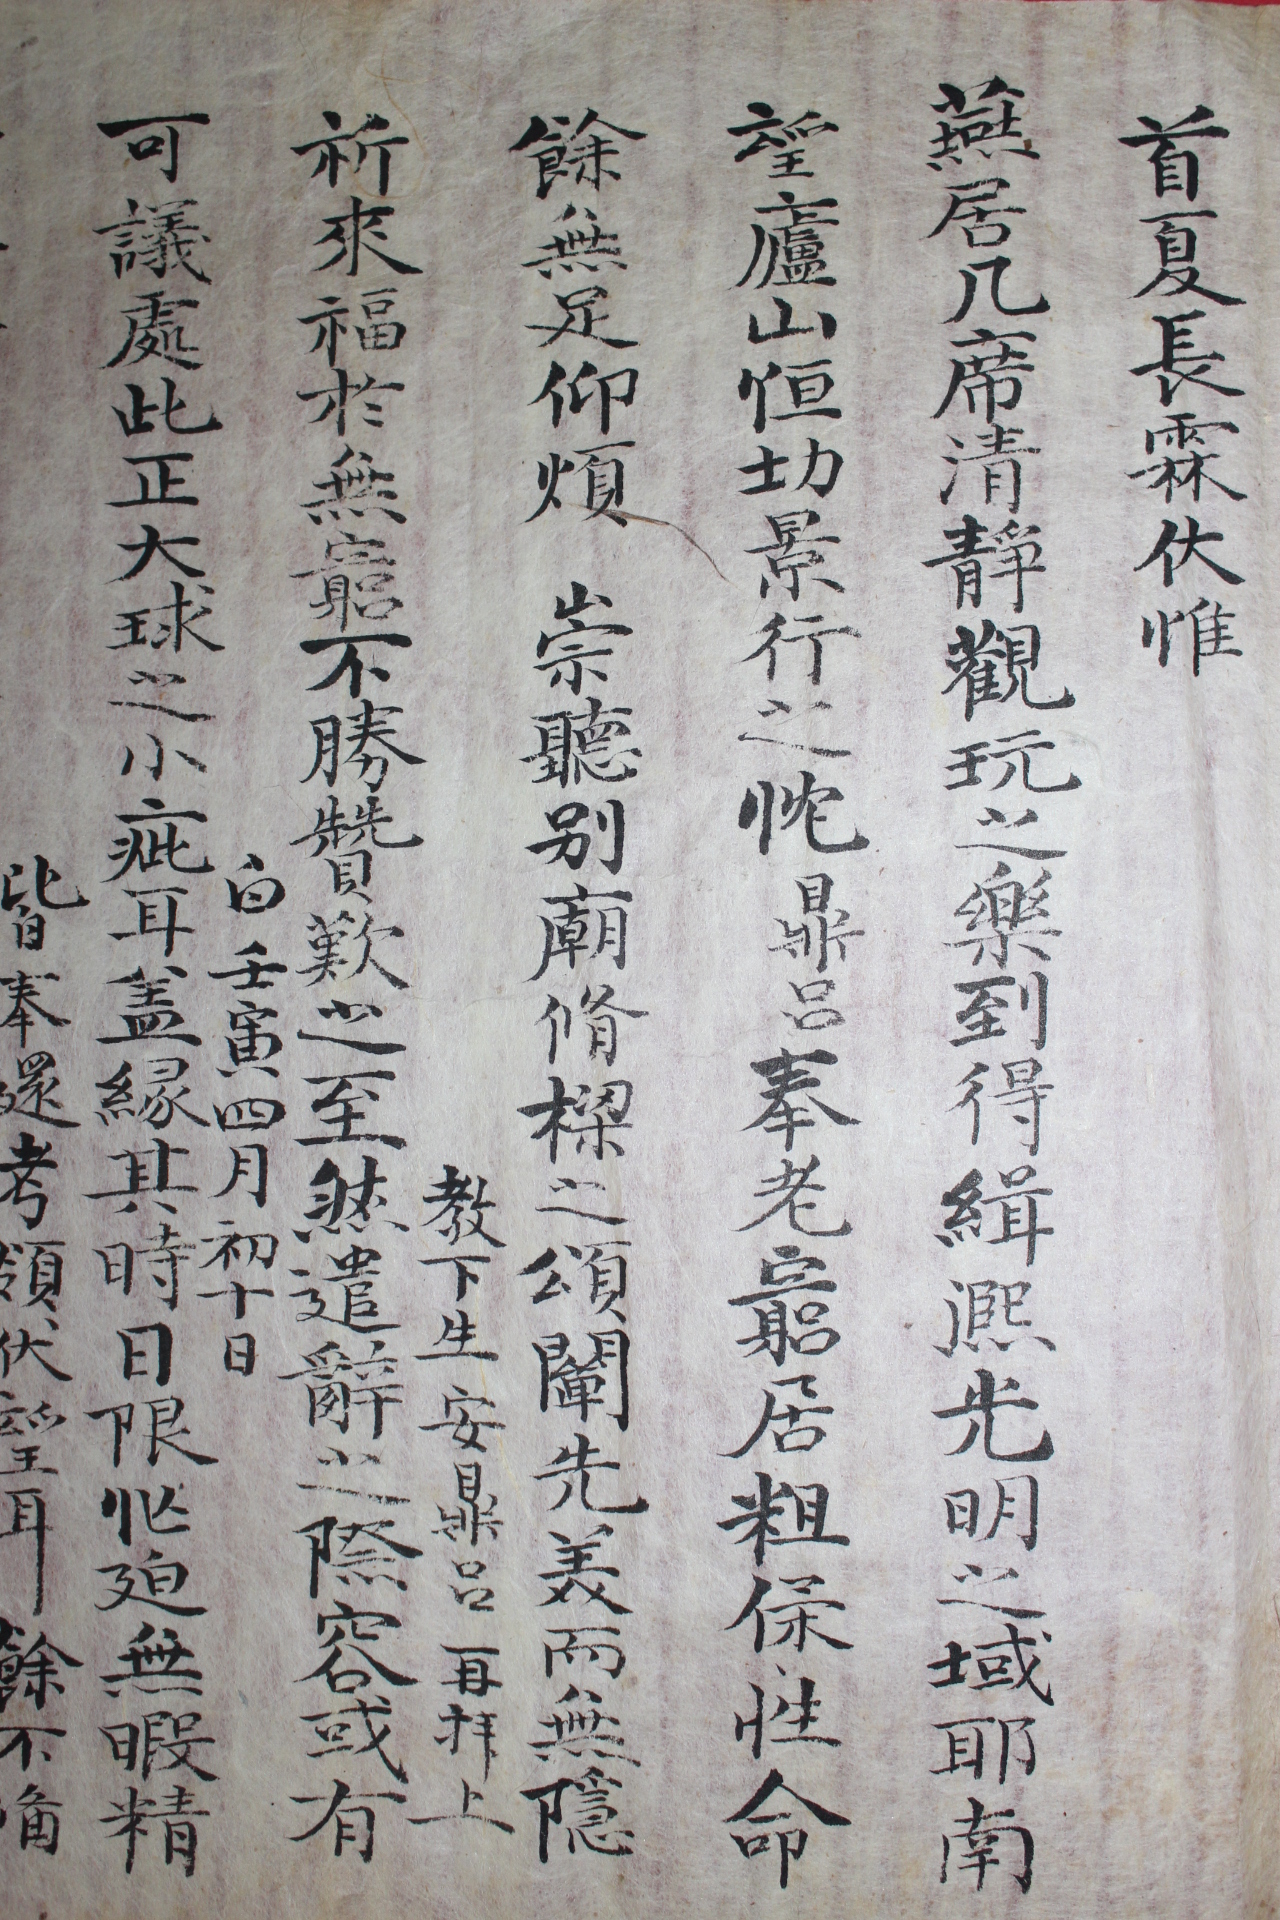 首夏長霖伏惟
燕居几席清静觀玩之樂到得緝熙光明之域耶南
望廬山恒切景行之忱鼎呂奉老窮居粗保性命
餘無足仰煩 崇聽別廟脩樑之頌闡先美而無隱
教下生 安鼎呂 再拜 上
祈來福於無窮不勝贊歎之至然遣辭之際容或有
白 壬寅四月初十日
可議處此正大球之小疵耳盖緣其時日限忙廹無暇精
皆奉還考領伏望耳 餘不備